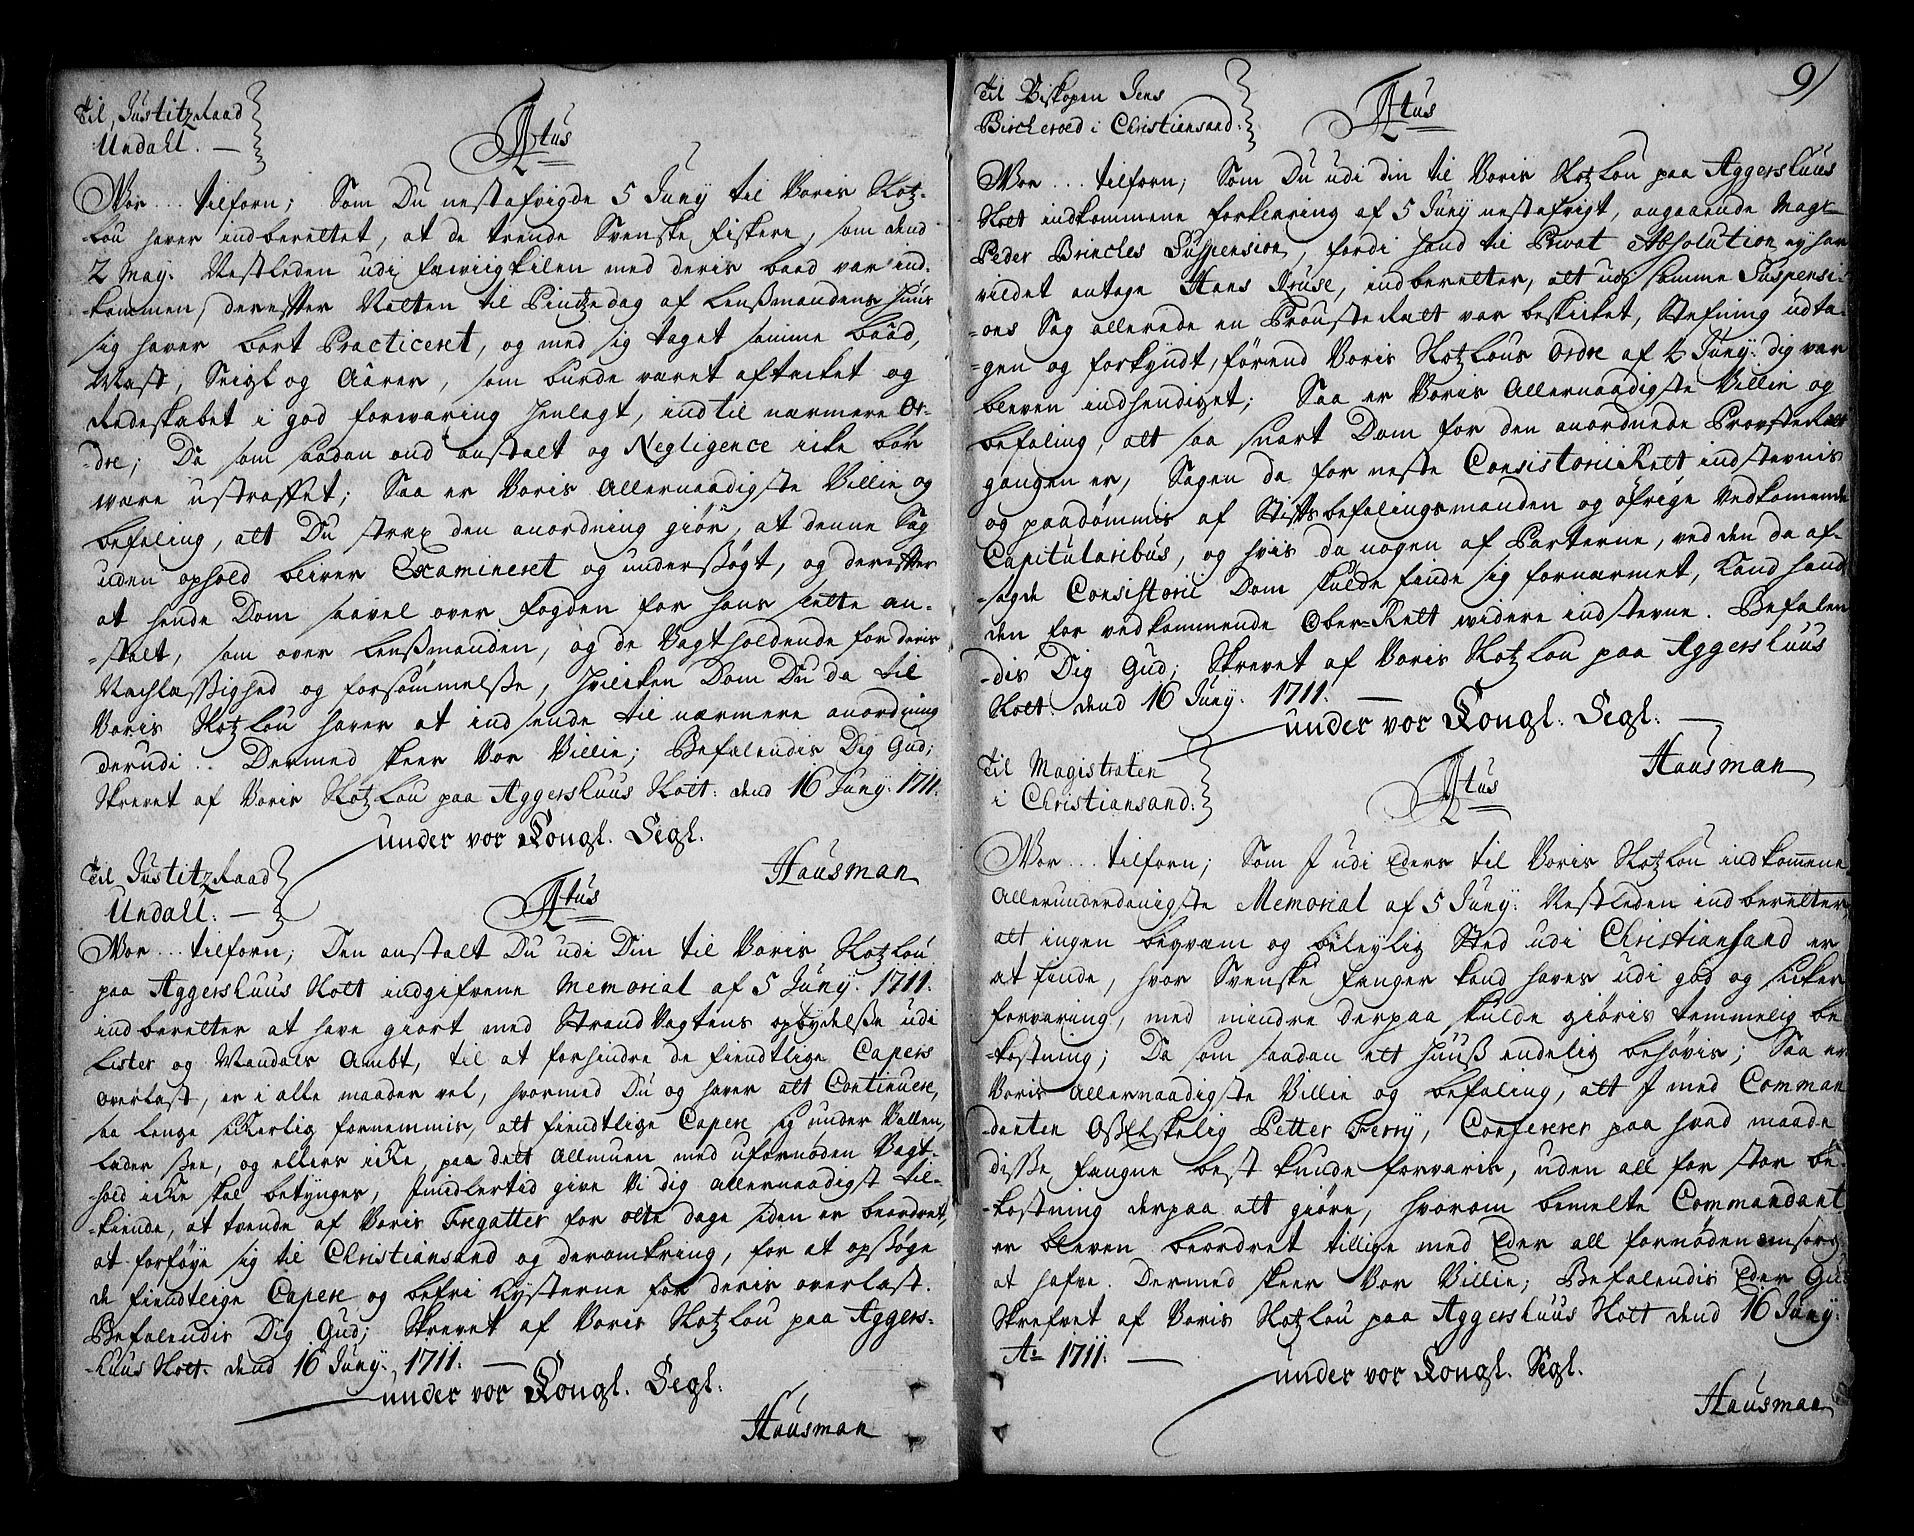 Til JustitzRaad
Undahl. —
Ftus
Wor... tilforn; Som Du nestafvigde 5 Juny til Voris Slotz-
-lou haver indberettet, at de trende Svenske fiskere, som dend
2 May. Nestleden udi med deris baad var ind-
-kommen, derefter Natten til Pintzedag af Lenßmandens Huus
sig haver bort Practiceret, og med sig taget samme baad,
Mast, Seigl og Aarer, som burde veret aftaket og
Redeskabet i god forwaring henlagt, indtil nærmere Or-
-dre; Da som saadan ond anstalt og Negligence icke bør
være ustraffet; Saa er Voris Allernaadigste Villie og
befaling, att Du strax den anordning giør, at denne Sag
uden ophold bliver Examineret og underßøgt, og derefter
at hende Dom saavel over fogden for hans slette an-
-stalt, som over Lenßmanden, og de Vagtholdende for deris
Nachlaßighed og forsømmelße, Hvilcken Dom Du da til
Voris Slotzlou haver at indsende til nærmere anordning
derudi.. Dermed skeer Vor Villie; Befalendis Dig Gud;
Skrevet af Voris Slotzlou paa Aggershuus Slott. dend 16 Juny. 1711.
under vor Kongl. Segl.
Hausman
Til JustitzRaad
Undahl. —
Ftus
Wor... tilforn; Den anstalt Du udi Din til Voris Slotzlou
paa Aggershuus Slott indgifvene Memorial af 5 Juny. 1711.
indberetter at have giort med StrandVagtens opbydelße udi
Lister og Mandals Ambt, til at forhindre de fiendtlige Capers
overlast, er i alle maader vel, hvormed Du og haver att Continuere,
saa lenge sickerlig fornemmis, att fiendtlige Capere sig under Vallen,
lader ßee, og ellers icke, paa dett Allmuen med ufornøden Vagt-
-hold icke skal betynges, Imidlertid give Vi dig allernaadigst til-
-kiende, at tvende af Voris Fregatter for otte dage siden er beordret,
at forføye sig til Christiansand og deromkring, for at opßøge
de fiendtlige Capere og befri Kysterne for deris overlast.
Befalendis Dig Gud; Skrevet af Voris Slotzlou paa Aggers-
-huus Slott. dend 16 Juny. 1711. —
under vor Kongl. Segl.
Hausman
9
Til Biskopen Jens
Bircheroed i Christiansand.
Ftus
Wor... tilforn; Som Du udi din til Voris Slotzlou paa Aggershuus
Slott indkommene forklering af 5 Juny nestafvigt, angaaende Magr
Peder Brincles Suspension, fordi hand til Privat Absolution ey har
vildet antage Hans Kruse, indberetter, att udj samme Suspensi-
-ons Sag allerede en ProusteRett var beskicket, Stefning udta-
-gen og forkyndt, førend Voris Slotzlous Ordre af Juny. dig var
bleven indhendiget; Saa er Voris Allernaadigste Villie og
befaling, att saa snart Dom for den anordnede ProvsteRett
gangen er, Sagen da for neste ConsistoriiRett indstevnis
og paadømmis af Stiftsbefalingsmanden og øfrige Vedkomende
Capitularibus, og hvis da nogen af Parterne, ved den da af-
-sagde Consistorii Dom skulde finde sig fornærmet, kand hand
den for vedkommende Ober-Rett widere indstevne. Befalen
-dis Dig Gud; Skrevet af Voris Slotzlou paa Aggershuus
Slott. dend 16 Juny. 1711. —
under vor Kongl. Segl. —
Hausman
Til Magistraten
i Christiansand.
Ftus
Wor... tilforn; Som I udi Eders til Voris Slotzlou indkomene
Allerunderdanigste Memorial af 5 Juny. Nestleden indberetter
att ingen beqvæm og beleylig Sted udi Christiansand er
at finde, hvor Svenske fanger kand haves udi god og sicker
forvaring, med mindre derpaa skulde giøris temmelig be
-kostning; Da som saadan ett Huuß endelig behøvis; Saa er
Voris Allernaadigste Villie og befaling, att I med Comman
-danten Oß Elskelig Petter Ferry, Confererer paa hvad maade
diße fangne best kunde forvaris, uden all for stor be-
-kostning derpaa att giøre, hvorom bemelte Commandant
er bleven beordret tillige med Eder all fornøden omsorg
at hafve. Dermed skeer Vor Villie; Befalendis Eder Gud
Skrefvet af Voris Slotzlou paa Aggershuus Slott dend 16 Juny.
Ao 1711. —
under vor Kongl. Segl.
Hausman